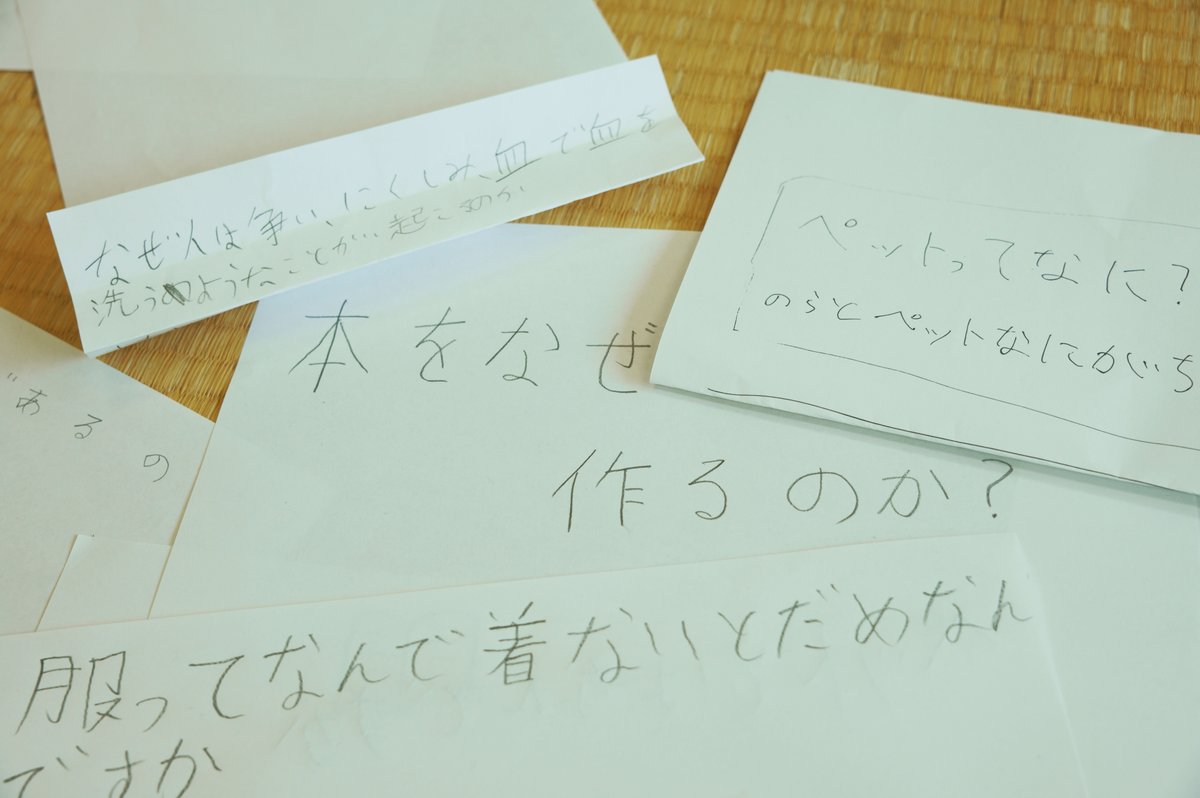 なぜ人は争い、にくしみ、血で血を
洗うのようなことが、起こるのか
ペットってなに?
のらとペットなにがいち
本をなぜ
作るのか?
あるの
服ってなんで着ないとだめなん
ですか